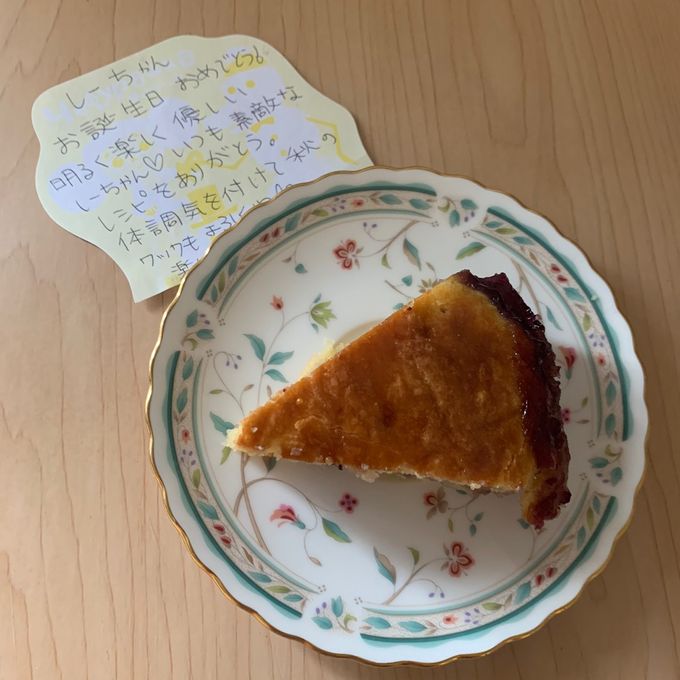 しーちゃん
お誕生日おめでとう!
明るく楽しく優しい
しーちゃん♡いつも素敵な
レシピをありがとう。
体調気を付けて秋の
ワックもよろしくね
楽